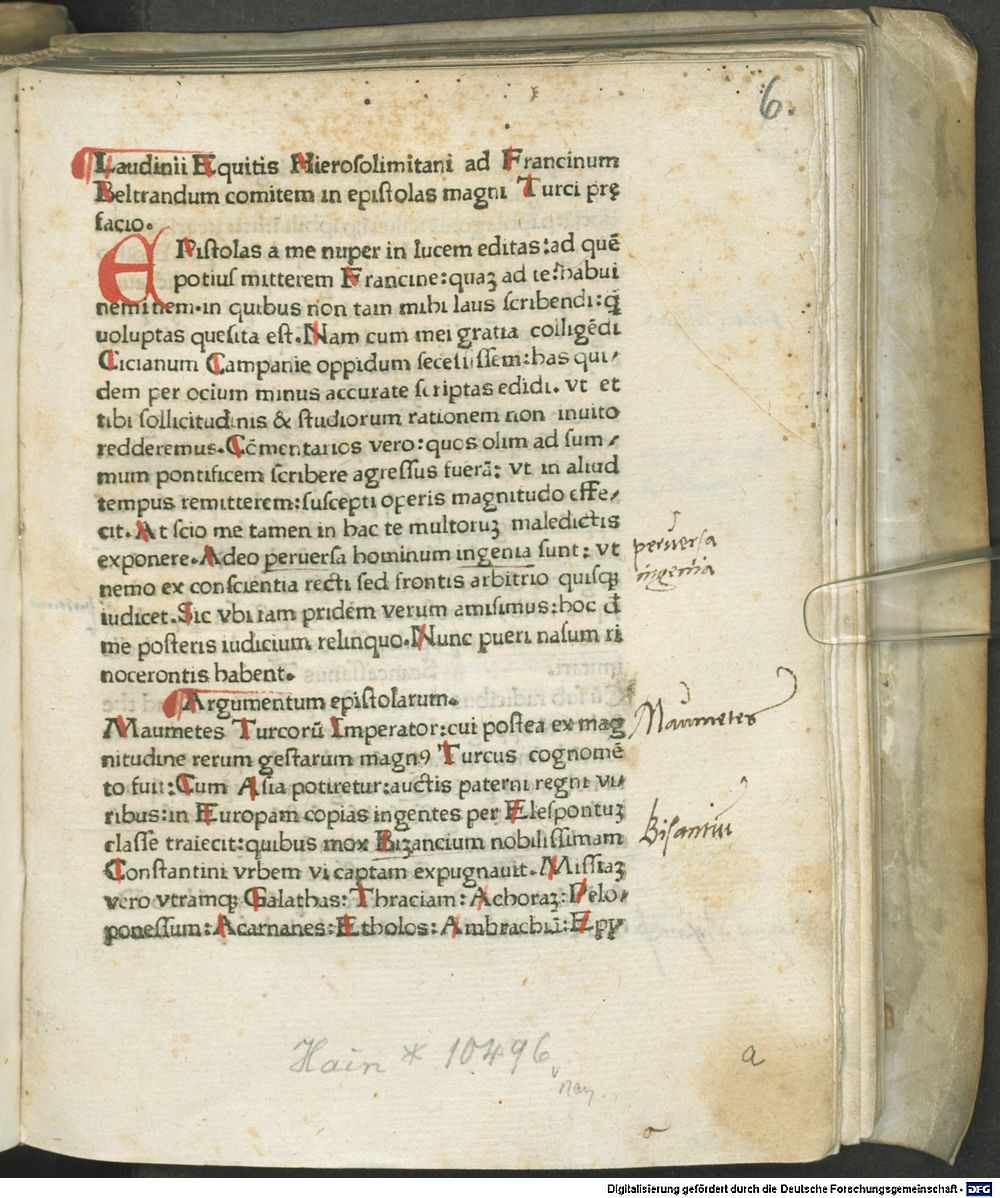 6.
Laudinii Equitis Hierosolimitani ad Francinum
Beltrandum comitem in epistolas magni Turci prę
facio.
EPistolas a me nuper in lucem editas: ad quē
potius mitterem Francine: quaꝫ ad te: habui
neminem. in quibus non tam mihi laus scribendi: q̄
uoluptas quesita est. Nam cum mei gratia colligēdi
Cicianum Campanie oppidum secessissem: has qui⸗
dem per ocium minus accurate scriptas edidi. vt et
tibi sollicitudinis & studiorum rationem non inuito
redderemus. Cōmentarios vero: quos olim ad sum⸗
mum pontificem scribere agressus fuerā: vt in aliud
tempus remitterem: suscepti operis magnitudo effe⸗
cit. At scio me tamen in hac te multoruꝫ maledictis
exponere. Adeo peruersa hominum ingenia sunt: vt
nemo ex conscientia recti sed frontis arbitrio quisqꝫ
iudicet. Sic vbi iam pridem verum amisimus: hoc đ
me posteris iudicium relinquo. Nunc pueri nasum ri
nocerontis habent.
peruersa
ingenia
Argumentum epistolarum.
Maumetes Turcorū Imperator: cui postea ex mag
nitudine rerum gestarum magnꝰ Turcus cognomē
to fuit: Cum Asia potiretur: auctis paterni regni vi⸗
ribus: in Europam copias ingentes per Elespontuꝫ
classe traiecit: quibus mox Bizancium nobilissimam
Constantini vrbem vi captam expugnauit. Missiaꝫ
vero vtramqꝫ Galathas: Thraciam: Achoraꝫ: Pelo⸗
ponessum: Acarnanes: Etholos: Ambrachiū: Epy
Maumetes
Bisantiū
Hain * 10496
a
Digitalisierung gefördert durch die Deutsche Forschungsgemeinschaft - DFG